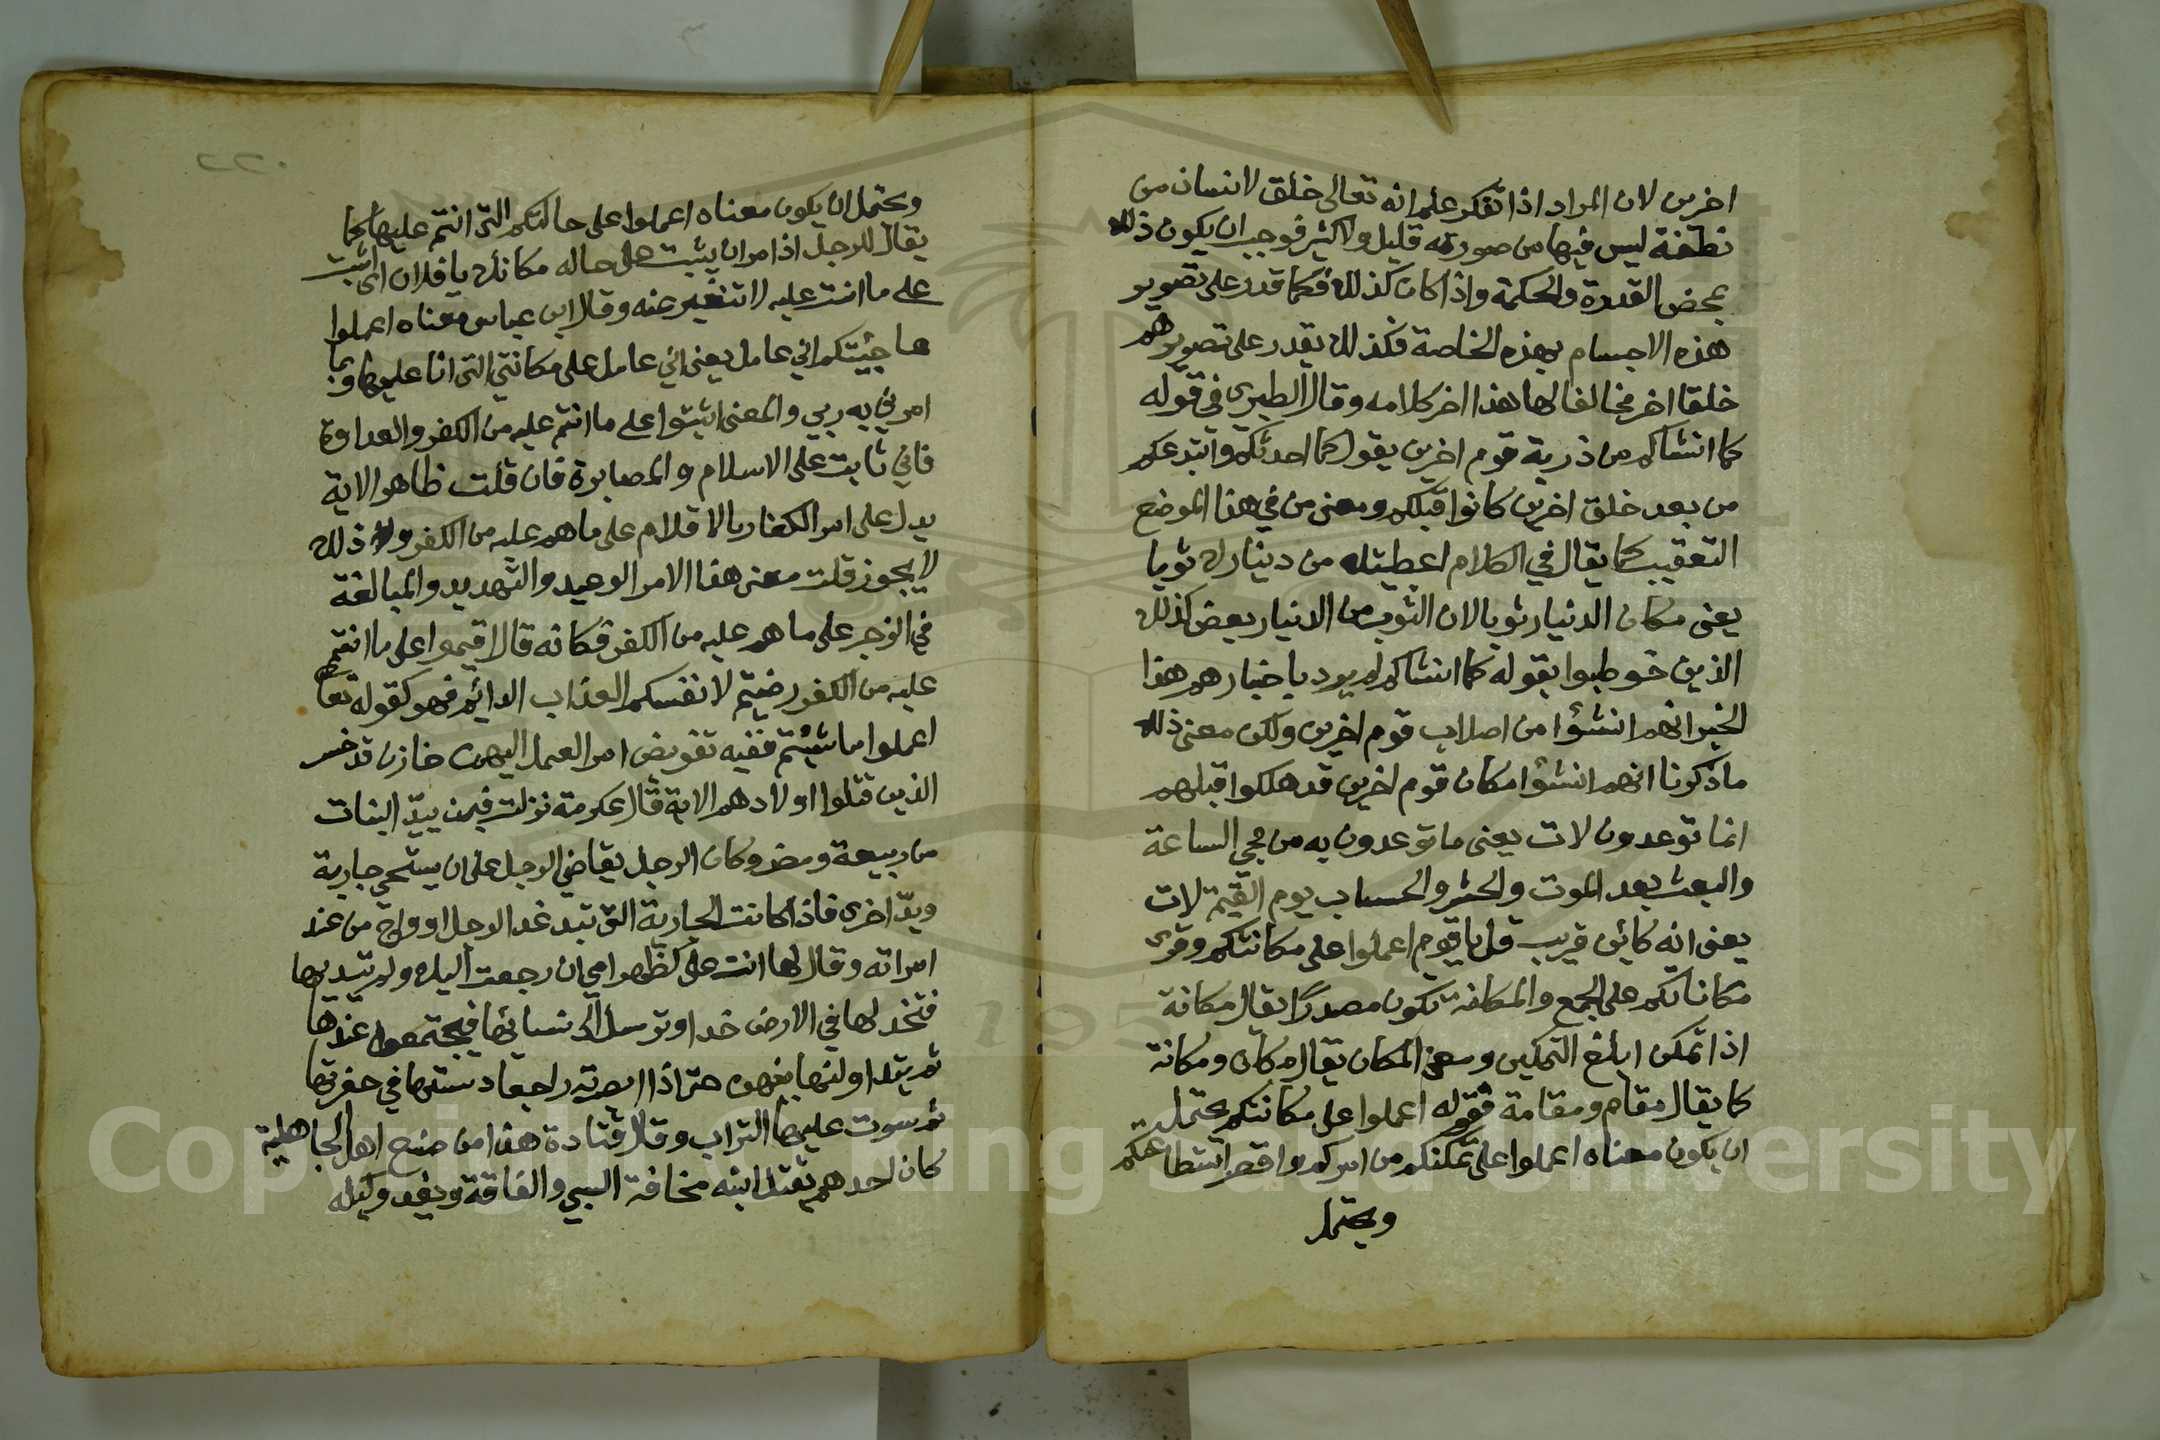 اخرين لان المراد اذا تفكر علم انه تعالى خلق الانسان من
نطفة ليس فيها من صورته قليل ولا كثير فوجب ان يكون ذلك
بمحض القدرة والحكمة واذا كان كذلك فكما قدر على تصوير
هذه الاجسام بهذه الخاصة فكذلك يقدر على تصويرهم
خلقا اخر مخالفا لها هذا اخر كلامه وقال الطبرى فى قوله
كما انشاكم من ذرية قوم اخرين يقول كما احدثكم وابتدعكم
من بعد خلق اخرين كانوا قبلكم ومعنى من في هذا الموضع
التعقيب كما يقال في الكلام اعطيتك من دينارك ثوبا
يعنى مكان الدنيار ثوبا لان الثوب من الدنيار بعض كذلك
الذين خوطبوا بقوله كما انشاكم لم يرد باخبارهم هذا
الخبر انهم انشؤا من اصلاب قوم اخرين ولكن معنى ذلك
ماذكرنا انهم انشؤا مكان قوم اخرين قد هلكوا قبلهم
انما توعدون لات يعنى ما توعدون به من مجي الساعة
والبعث بعد الموت والحشر والحساب يوم القيمة لات
يعنى انه كائن قريب قل يا قوم اعملوا على مكانتكم وقرى
مكاناتكم على الجمع والمكانة تكون مصدرًا يقال مكانة
اذا تمكن ابلغ التمكين ومعنى المكان يقال مكان ومكانة
كما يقال مقام ومقامة فقوله اعملوا على مكانتكم يحتمل
ان يكون معناه اعملوا على تمكنكم من امركم واقصى استطاعتكم
ويحتمل
٢٢٠
ويحتمل ان يكون معناه اعملوا على حالتكم التى انتم عليها كما
يقال للرجل اذا امر ان يثبت على حاله مكانك يا فلان اى اثبت
على ما انت عليه لا تتغير عنه وقال ابن عباس معناه اعملوا
ما جئيتكم اني عامل يعنى اني عامل على مكانتي التى انا عليها وبما
امرني به ربي والمعنى اثبتوا على ما انتم عليه من الكفر والعداوة
فاني ثابت على الاسلام والمصابرة فان قلت ظاهر الاية
يدل على امر الكفار بالاقلام على ماهم عليه من الكفر وذلك
لا يجوز قلت معنى هذا الامر الوعيد والتهديد والمبالغة
في الزجر على ما هم عليه من الكفر فكانه قال اقيموا على ما انتم
عليه من الكفر رضيتم لانفسكم العذاب الدائم فهو كقوله تعالى
اعملوا ما شئتم ففيه تفويض امر العمل اليهم خازن قد خسر
الذين قتلوا اولادهم الاية قال عكرمة نزلت فيمن يئد البنات
من ربيعة ومضر وكان الرجل يقاضي الرجل على ان يستحي جارية
ويئد اخرى فاذا كانت الجارية التى تئد غدا الرجل او راح من عند
امراته وقال لها انت على كظهر امي ان رجعت اليك ولم تئديها
فتخد لها في الارض خدا وترسل الى نسائها فيجتمعوا عندها
ثم يتداولنها بينهن حتى اذا ابصرته راجعا دستها في حفرتها
ثم سوت عليها التراب وقال قتادة هذا من صنع اهل الجاهلية
كان احدهم يقتل ابنته مخافة السبي والفاقة ويغدو كلبه
Copyright © King Saud University